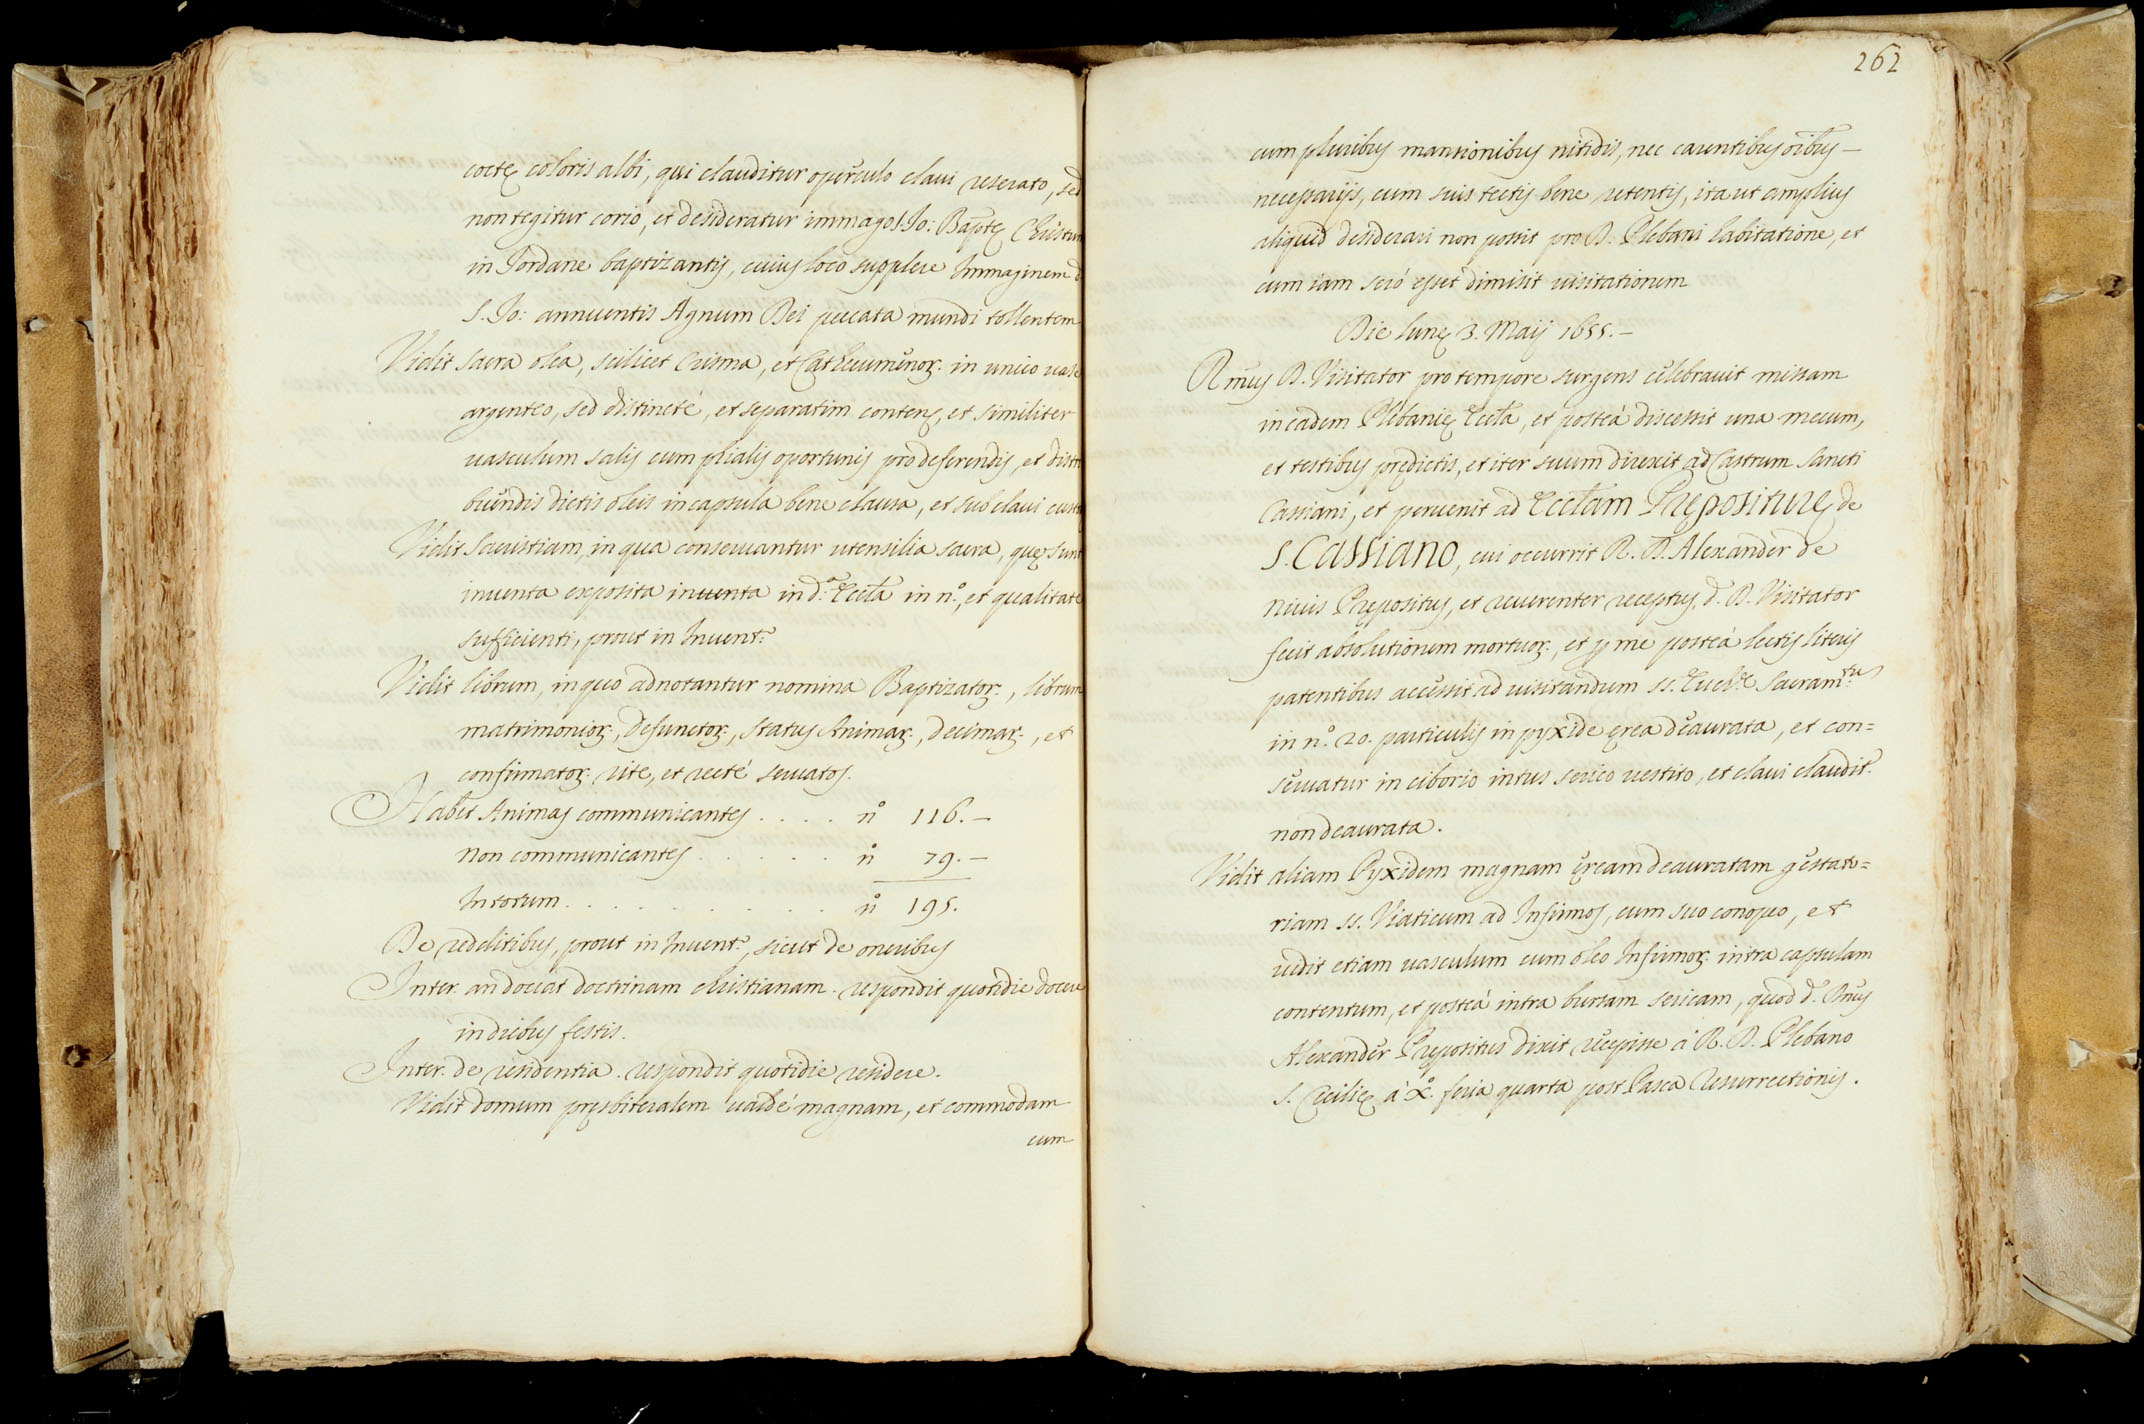 coctę coloris albi, qui clauditur operculo claui reserato, sed
non tegitur corio, et desideratur immago S. Jo: Baptę Christum
in Jordane baptizantis, cuius loco supplere Immaginem d
S. Jo: annuentis Agnum Dei peccata mundi tollentem
Vidit sacra olea, scilicet Crisma, et Cathecumenor. in unico vase
argenteo, sed distincté, et separatim contens, et similiter
vasculum salis cum phialis oportunis pro deferendis, et distri
buendis dictis oleis in capsula bene clausa, et sub claui
Vidit Sacristiam, in qua conseruantur utensilia sacra, quę sunt
inuenta exposita inuenta in d.ª Eccla in n.º, et qualitate
sufficienti, prout in Inuent.º
Vidit librum, in quo adnotantur nomina Baptizator., librum
matrimonior., defunctor., status Animar., decimar., et
confirmator. rite, et recté seruatos.
Habet Animas communicantes . . . . nº 116. –
Non communicantes . . . . . nº 79. –
In totum . . . . . . . . . . nº 195.
De redditibus, prout in Inuent.º, sicut de oneribus
Inter. an doceat doctrinam christianam. respondit quotidie docere
in diebus festis.
Inter. de residentia. respondit quotidie residere.
Vidit domum pręsbiteralem valdé magnam, et commodam
cum
262
cum pluribus mansionibus nitidis, nec carentibus oibus –
necessarijs, cum suis tectis bene retentis, ita ut amplius
aliquid desiderari non possit pro D. Plebani habitatione, et
cum iam seró esset dimisit visitationem
Die lunę 3. Maij 1655. –
Rmus D. Visitator pro tempore surgens celebrauit missam
in eadem Plebanię Eccla, et posteá discessit una mecum,
et testibus prędictis, et iter suum direxit ad Castrum Sancti
Cassiani, et peruenit ad Ecclam Prępositurę de
S. Cassiano, cui occurrit R. D. Alexander de
Niuis Prępositus, et reuerenter receptus, d. D. Visitator
fecit absolutionem mortuor., et p me posteá lectis literis
patentibus accessit ad visitandum SS. Euchę Sacramtu
in n.º 20. particulis in pyxide ęrea deaurata, et con=
seruatur in ciborio intus serico vestito, et claui claudit.
non deaurata.
Vidit aliam Pyxidem magnam ęream deauratam gestato=
riam SS. Viaticum ad Infirmos, cum suo conopeo, et
vidit etiam vasculum cum oleo Infirmor. intra capsulam
contentum, et posteá intra bursam sericam, quod d. Dnus
Alexander Prępositus dixit recepisse á R. D. Plebano
S. Cecilię á Xº. feria quarta post Pasca Resurrectionis.